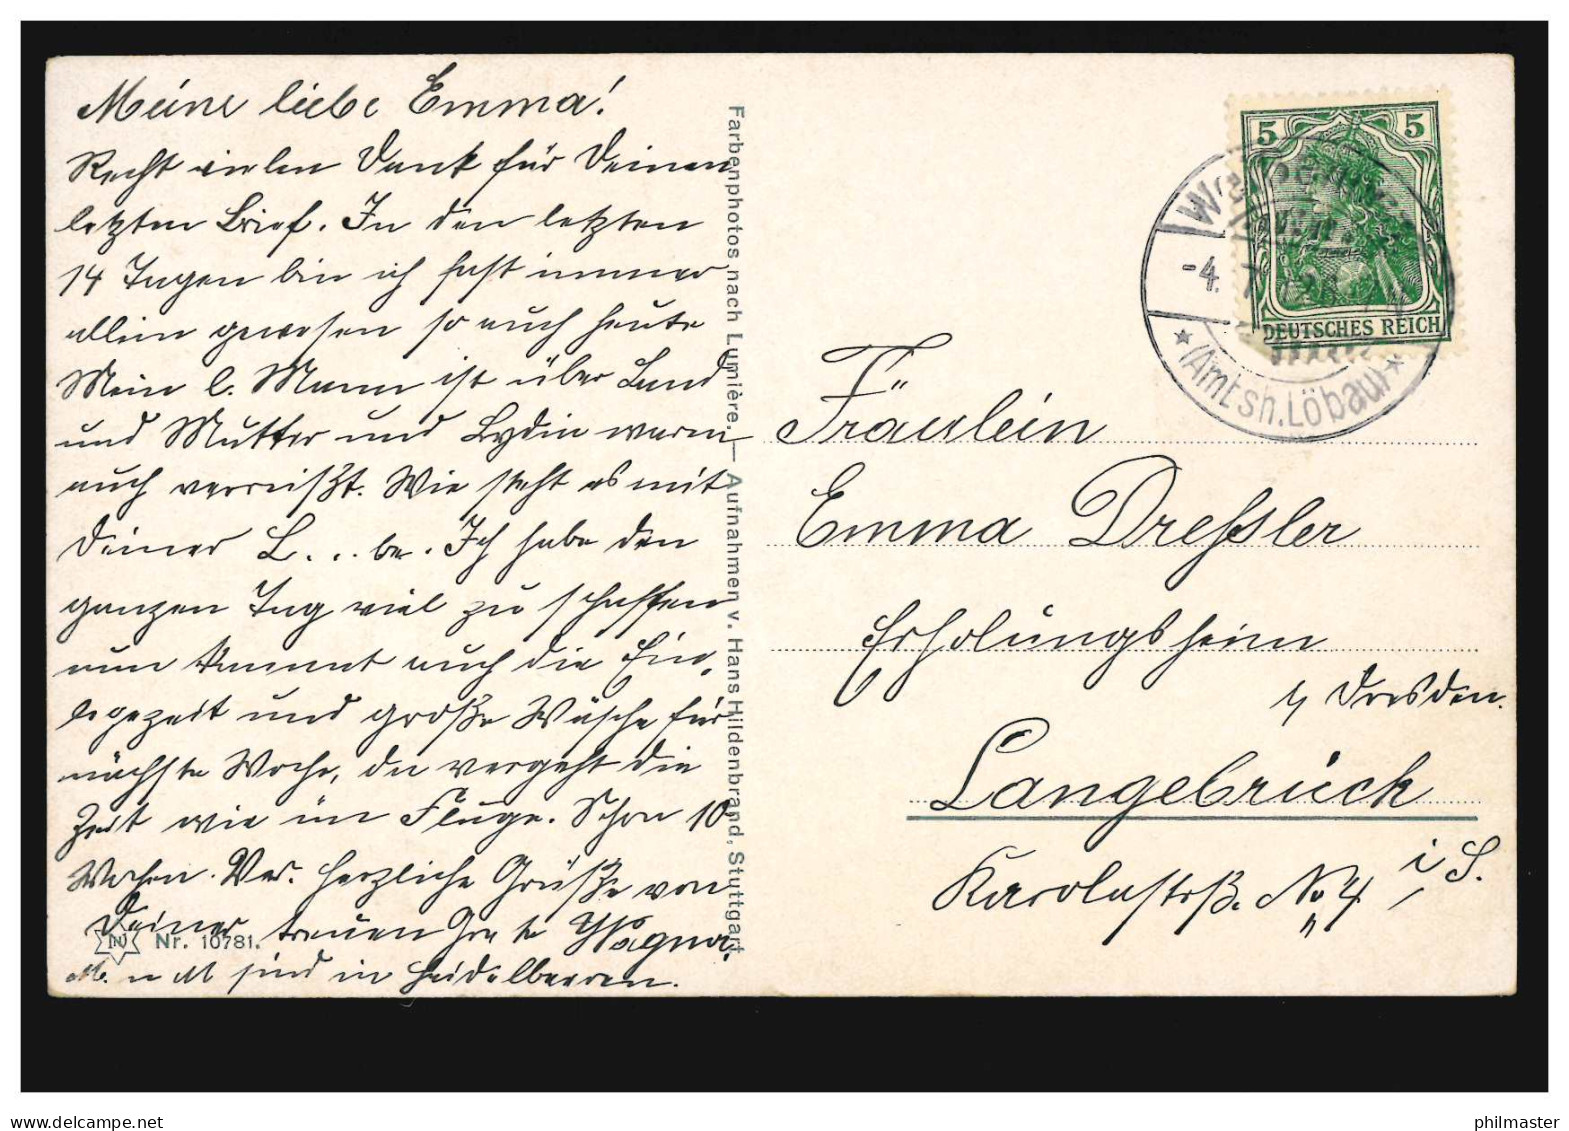 Meine liebe Emma!
Recht vielen Dank für Deinen
letzten Brief. In den letzten
14 Tagen bin ich fast immer
allein gewesen so auch heute
Mein l. Mann ist über Land
und Mutter und Lydia waren
auch verreißt. Wie steht es mit
Deiner L... be. Ich habe den
ganzen Tag viel zu schaffen
nun kommt auch die Ein-
legezeit und große Wäsche für
nächste Woche, da vergeht die
Zeit wie im Fluge. Schon 10
Wochen. Ver. herzliche Grüße von
Deiner treuen Grete Wagner.
M. u M sind in Heidelbeeren.
Nr. 10781.
Farbenphotos nach Lumière. — Aufnahmen v. Hans Hildenbrand, Stuttgart
5 5
DEUTSCHES REICH
-4. 7.
(Amtsh. Löbau)
Fräulein
Emma Dreßler
Erholungsheim
b/ Dresden.
Langebrück
i/S.
Karolastrß. No 4
delcampe.net
philmaster